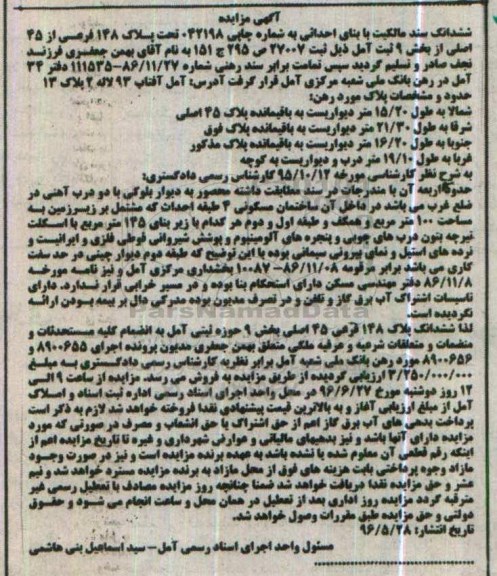 آگهی مزایده
ششدانگ سند مالکیت با بنای احداثی به شماره چاپی ۰۴۲۱۹۸ تحت پلاک ۱۴۸ فرعی از ۴۵
اصلی از بخش ۹ ثبت آمل ذیل ثبت ۲۷۰۰۷ ص ۲۹۵ ج ۱۵۱ به نام آقای بهمن جعفری فرزند
نجف صادر و تسلیم گردید سپس تمامت برابر سند رهنی شماره ۱۱۱۵۳۵-۸۶/۱۱/۲۷ دفتر ۳۴
آمل در رهن بانک ملی شعبه مرکزی آمل قرار گرفت آدرس: آمل آفتاب ۹۳ لاله ۲ پلاک ۱۳
حدود و مشخصات پلاک مورد رهن:
شمالا به طول ۱۵/۲۰ متر دیواریست به باقیمانده پلاک ۴۵ اصلی
شرقا به طول ۲۱/۳۰ متر دیواریست به باقیمانده پلاک فوق
جنوبا به طول ۱۶/۲۰ متر دیواریست به باقیمانده پلاک مذکور
غربا به طول ۱۹/۱۰ متر درب و دیواریست به کوچه
به شرح نظر کارشناسی مورخه ۹۵/۱۰/۱۲ کارشناس رسمی دادگستری:
حدود اربعه آن با مندرجات در سند مطابقت داشته محصور به دیوار بلوکی با دو درب آهنی در
ضلع غرب می باشد در داخل آن ساختمان مسکونی ۴ طبقه احداث که مشتمل بر زیرزمین به
مساحت ۱۰۰ متر مربع و همکف و طبقه اول و دوم هر کدام با زیر بنای ۱۴۵ متر مربع با اسکلت
تیرچه بتون درب های چوبی و پنجره های آلومینیوم و پوشش شیروانی قوطی فلزی و ایرانیت و
نرده های استیل و نمای بیرونی سیمانی بوده با این توضیح که طبقه دوم دیوار چینی در حد سفت
کاری می باشد برابر مرقومه ۸۶/۱۱/۰۸-۱۰۰۸۷ بخشداری مرکزی آمل و نیز نامه مورخه
۸۶/۱۱/۸ دفتر مهندسی مسکن دارای استحکام بنا بوده و در مسیر خرابی قرار ندارد. دارای
تاسیسات اشتراک آب برق گاز و تلفن و در تصرف مدیون بوده مدرکی دال بر بیمه بودن ارائه
نگردیده است.
لذا ششدانگ پلاک ۱۴۸ فرعی ۴۵ اصلی بخش ۹ حوزه ثبتی آمل به انضمام کلیه مستحدثات و
منضمات و متعلقات شرعیه و عرفیه ملکی متعلق بهمن جعفری مدیون پرونده اجرای ۸۹۰۰۶۵۵ و
۸۹۰۰۶۵۶ مورد رهن بانک ملی شعبه آمل برابر نظریه کارشناس رسمی دادگستری به مبلغ
۳/۲۵۰/۰۰۰/۰۰۰ ارزیابی گردیده از طریق مزایده به فروش می رسد. مزایده از ساعت ۹ الی
۱۲ روز دوشنبه مورخ ۹۶/۶/۲۷ در محل واحد اجرای اسناد رسمی اداره ثبت اسناد و املاک
آمل از مبلغ ارزیابی آغاز و به بالاترین قیمت پیشنهادی نقدا فروخته خواهد شد لازم به ذکر است
پرداخت بدهی های آب برق گاز اعم از حق اشتراک یا حق انشعاب و مصرف در صورتی که مورد
مزایده دارای آنها باشد و نیز بدهیهای مالیاتی و عوارض شهرداری و غیره تا تاریخ مزایده اعم از
اینکه رقم قطعی آن معلوم شده یا نشده باشد به عهده برنده مزایده است و نیز در صورت وجود
مازاد وجوه پرداختی بابت هزینه های فوق از محل مازاد به برنده مزایده مسترد خواهد شد و نیم
عشر و حق مزایده نقدا دریافت خواهد شد ضمنا چنانچه روز مزایده مصادف با تعطیل رسمی غیر
مترقبه گردد مزایده روز اداری بعد از تعطیل در همان محل و ساعت انجام می شود و حقوق
دولتی و حق مزایده طبق مقررات وصول خواهد شد.
تاریخ انتشار: ۹۶/۵/۲۸
مسئول واحد اجرای اسناد رسمی آمل – سید اسماعیل بنی هاشمی
ParsNamadData